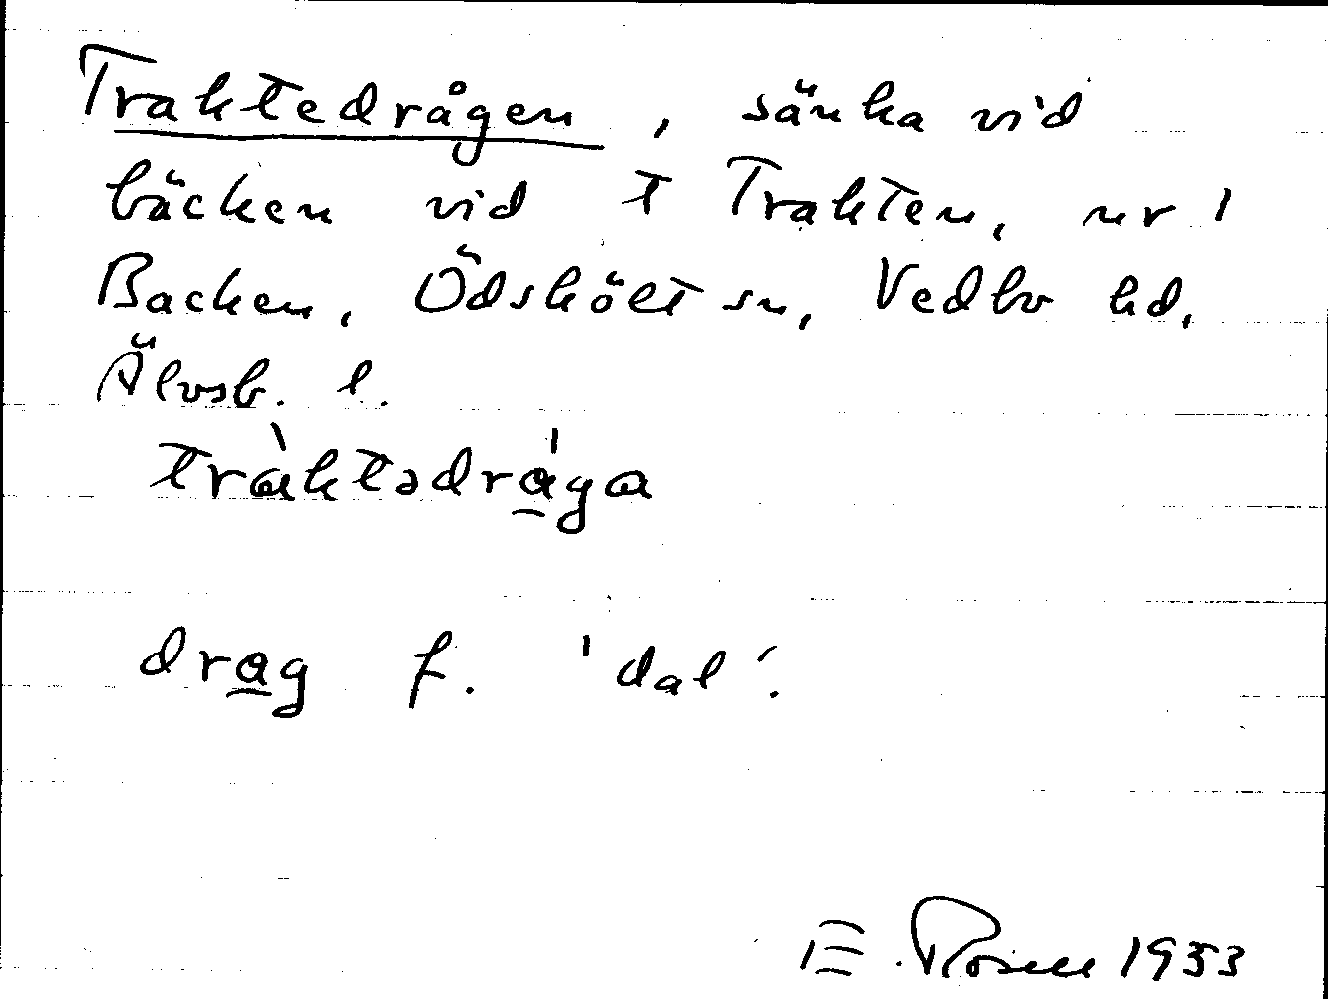 Traktedrågen, sänka vid
bäcken vid T Trakten, nr 1
Backen, Ödskölt sn, Vedbo hd,
Älvsb. l.
tràktədra̲'ga
dra̲g f. 'dal'.
E. Rosell 1953